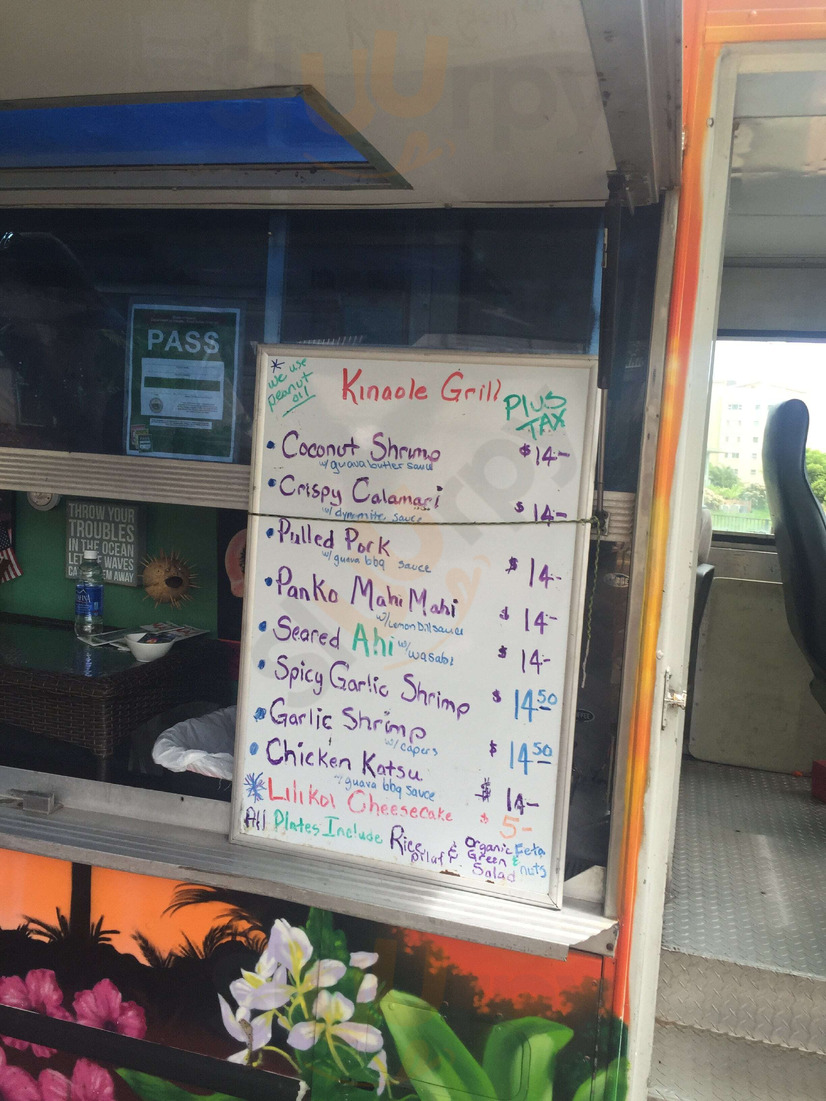 PASS
* we use
peanut
oil
Kinaole Grill
PLUS
TAX
• Coconut Shrimp $14-
w/guava butter sauce
• Crispy Calamari $14-
w/ dynamite sauce
• Pulled Pork $14-
w/guava bbq sauce
• Panko Mahi Mahi $14-
w/Lemon Dill sauce
• Seared Ahi w/wasabi $14-
• Spicy Garlic Shrimp $14.50
• Garlic Shrimp $14.50
w/capers
• Chicken Katsu $14-
w/guava bbq sauce
* Lilikoi Cheesecake $5-
All Plates Include Rice pilaf & Organic Green Salad Feta & nuts
THROW YOUR
TROUBLES
IN THE OCEAN
LET WAVES
THEM AWAY
slurpy